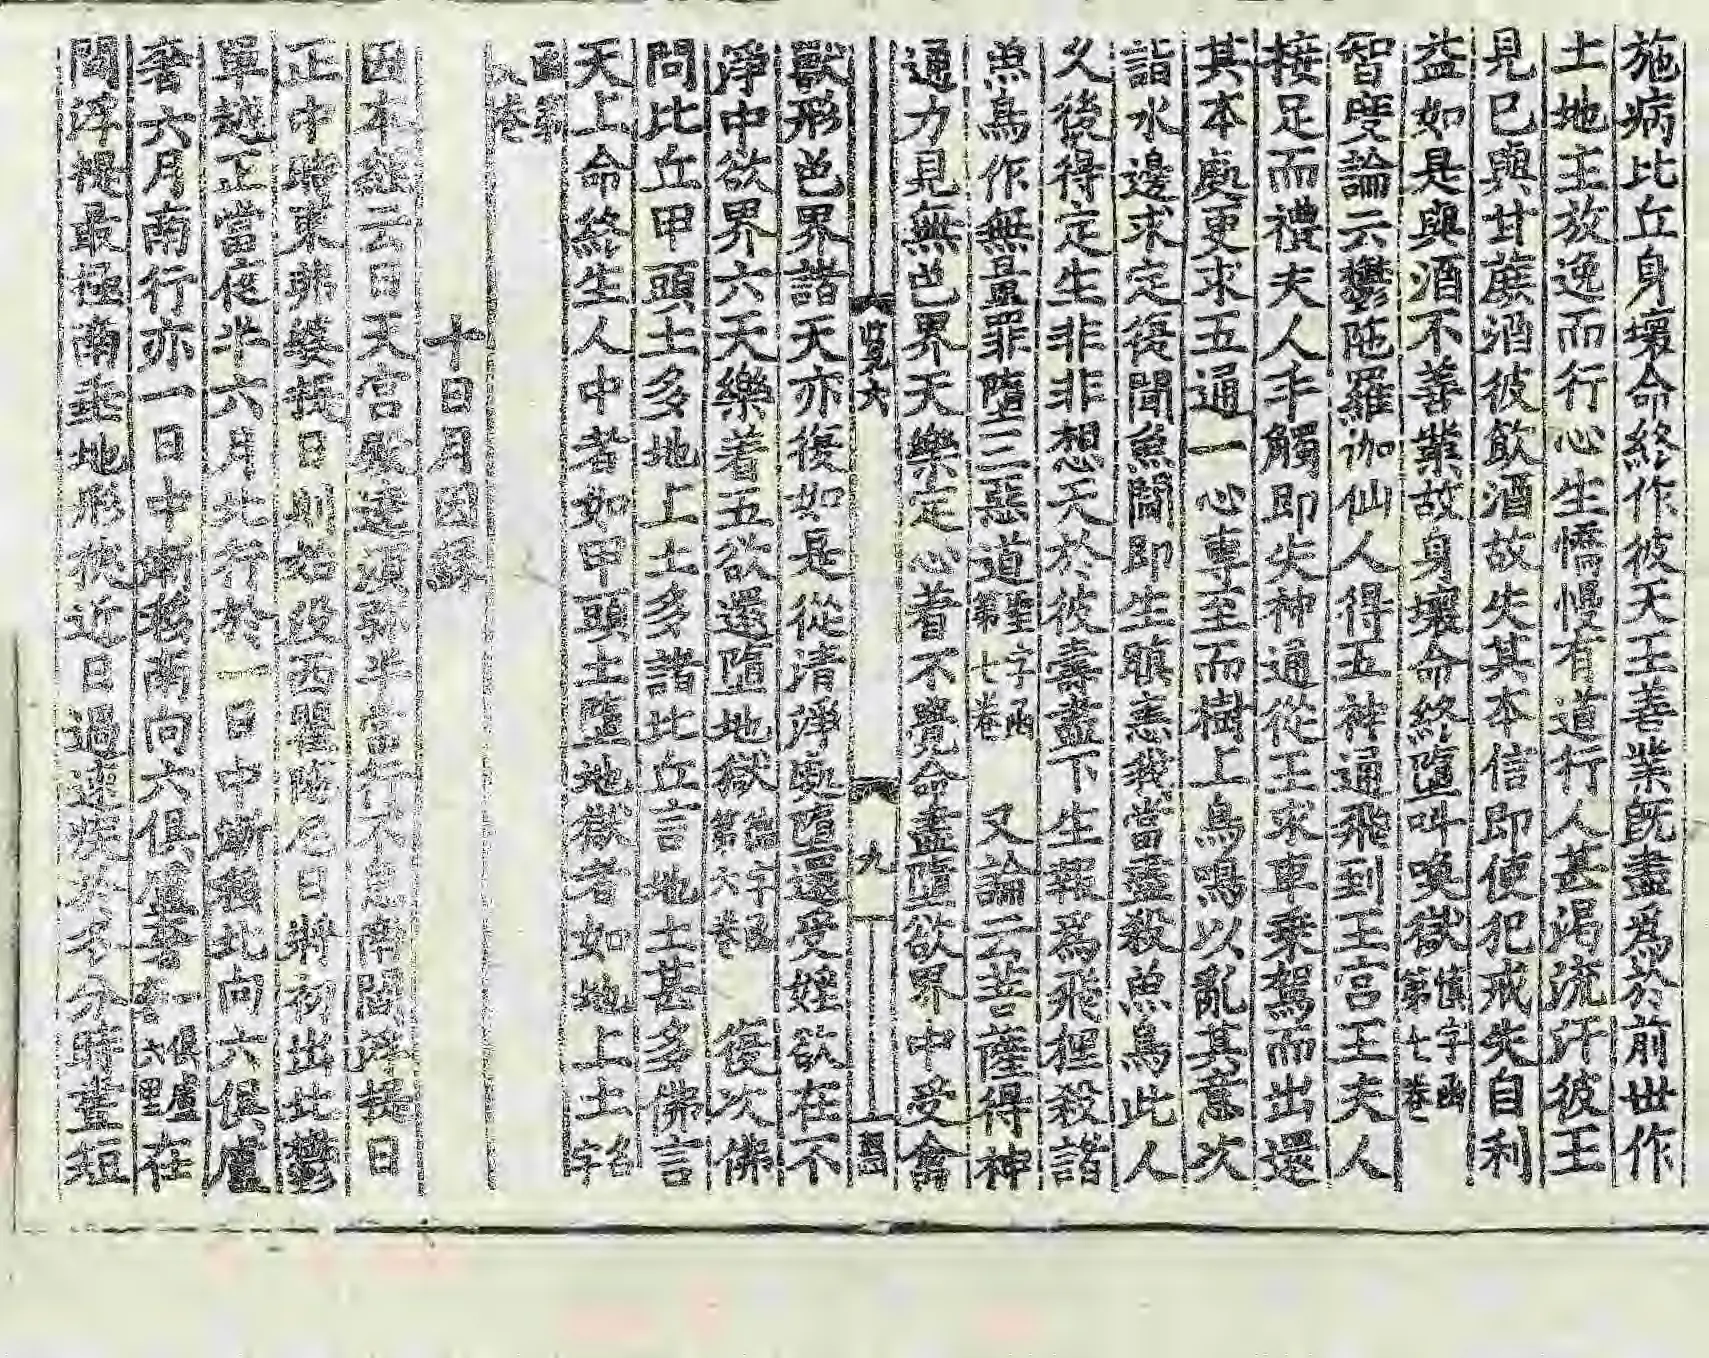 施病比丘身壞命終作彼天王善業既盡爲於前世作
土地主放逸而行心生憍慢有道行人甚渴流汗彼王
見巳與甘蔗酒彼飲酒故失其本信即便犯戒失自利
益如是與酒不善業故身壞命終墮呌喚獄慎字函第七卷
智度論云欝陁羅伽仙人得五神通飛到王宫王夫人
接足而禮夫人手觸即失神通從王求車乘駕而出還
其本處更求五通一心專至而樹上鳥鳴以亂其意次
詣水邊求定復聞魚闘即生瞋恚我當盡殺魚鳥此人
乆後得定生非非想天於彼壽盡下生報爲飛狸殺諸
魚鳥作無量罪墮三惡道聖字函第七卷 又論云菩薩得神
通力見無色界天樂定心著不覺命盡墮欲界中受禽
覽六 九
獸形色界諸天亦復如是從清淨處墮還受婬欲在不
淨中欲界六天樂着五欲還墮地獄第六卷 復次佛
問比丘甲頭土多地上土多諸比丘言地土甚多佛言
天上命終生人中者如甲頭土墮地獄者如地上土字
函第卷
十日月因緣
因本經云日天宫殿遶須弥半當行不息南閻浮提日
正中時東弗婆提日則始没西瞿陁尼日將初出北欝
單越正當夜半六月北行於一日中漸移北向六俱盧
著六月南行亦一日中漸移南向六俱盧奢在
閻浮提最極南垂地形狹近日過速疾是分晝短